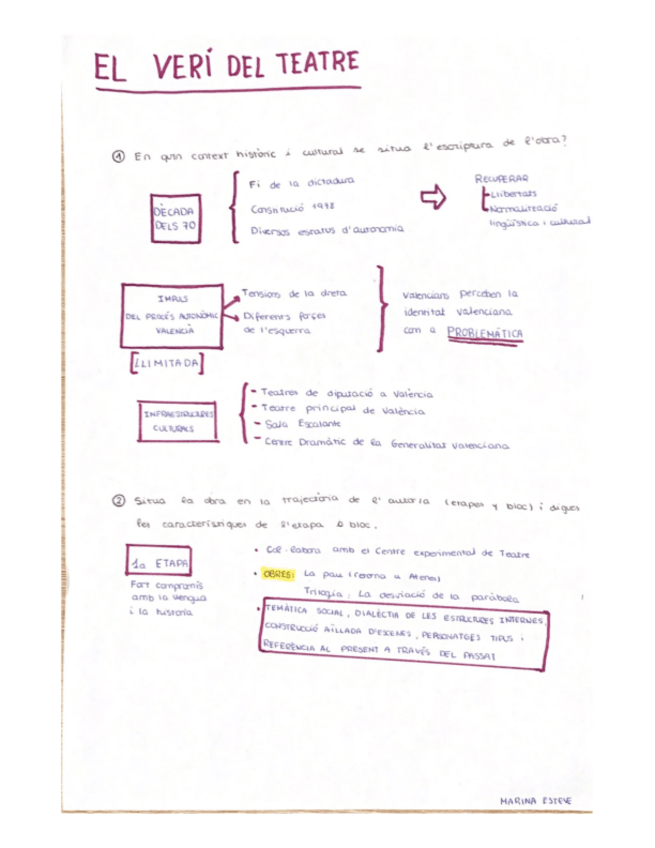 EL VERÍ DEL TEATRE
① En quin context històric i cultural se situa l'escriptura de l'obra?
DÈCADA
DELS 70
Fi de la dictadura
Constitució 1978
Diversos estatus d'autonomia
RECUPERAR
Llibertats
Normalització
lingüística i cultural
IMPULS
DEL PROCÉS AUTONÒMIC
VALENCIÀ
[LLIMITADA]
Tensions de la dreta
Diferents forçes
de l'esquerra
Valencians perceben la
identitat valenciana
com a PROBLEMÀTICA
INFRAESTRUCTURES
CULTURALS
- Teatres de diputació a València
- Teatre principal de València
- Sala Escalante
- Centre Dramàtic de la Generalitat Valenciana
② Situa la obra en la trajectòria de l'autor/a (etapes y bloc) i digues
les característiques de l'etapa o bloc.
1a ETAPA
Fort compromís
amb la llengua
i la història
• Col·labora amb el Centre experimental de Teatre
• OBRES: La pau (retorna a Atenes)
Trilogia: La desviació de la paràbola
• TEMÀTICA SOCIAL, DIALÈCTIA DE LES ESTRUCTURES INTERNES,
CONSTRUCCIÓ AÏLLADA D'ESCENES, PERSONATGES TIPUS i
REFERÈNCIA AL PRESENT A TRAVÉS DEL PASSAT
MARINA ESTEVE